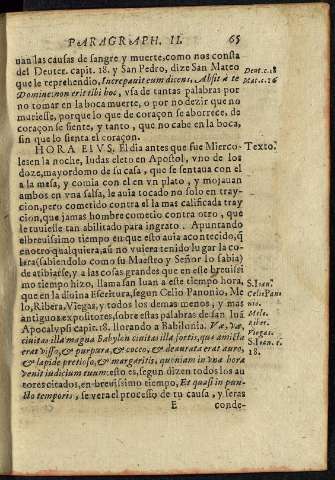 PARAGRAPH. II. 65
uan las causas de sangre y muerte, como nos consta
del Deuter. capit. 18. y San Pedro, dize San Mateo
que le reprehendio, Increpauit eum dicens, Absit à te
Domine: non erit tibi hoc, vsa de tantas palabras por
no tomar en la boca muerte, o por no dezir que no
muriesse, porque lo que de coraçon se aborrece, de
coraçon se siente, y tanto, que no cabe en la boca,
sin que lo sienta el coraçon.
Deut. c. 18
Mat. c. 16
HORA EIVS. El dia antes que fue Mierco-
les en la noche, Iudas eleto en Apostol, vno de los
doze, mayordomo de su casa, que se sentaua con el
a la mesa, y comia con el en vn plato, y mojauan
ambos en vna salsa, le auia tocado no solo en tray-
cion, pero cometido contra el la mas calificada tray
cion, que jamas hombre cometio contra otro, que
le tuuiesse tan abilitado para ingrato. Apuntando
el breuissimo tiempo en que esto auia acontecido, q̃
en otro qualquiera, assi no vuiera tenido lugar la co-
lera (sabiendolo como su Maestro y Señor lo sabia)
de atibiarse, y a las cosas grandes que en este breuissi
mo tiempo hizo, llama san Iuan a este tiempo hora,
que en la diuina Escritura, segun Celio Panonio, Me
lo, Ribera, Viegas, y todos los demas menos, y mas
antiguos expositores, sobre estas palabras de san Iuã
Apocalypsi capit. 18. llorando a Babilonia. Væ, væ,
ciuitas illa magna Babylon ciuitas illa fortis, quæ amicta
erat bisso, & purpura, & cocco, & deaurata erat auro,
& lapide pretioso, & margaritis, quoniam in vna hora
venit iudicium tuum: esto es, segun dizen todos los au
tores citados, en breuissimo tiempo, Et quasi in pun-
cto temporis, se vera el processo de tu causa, y seras
Texto.
S. Ioan.
Celio Pano
nio.
Melo.
Riber.
Viegas.
S. Ioan. c.
18.
E conde-